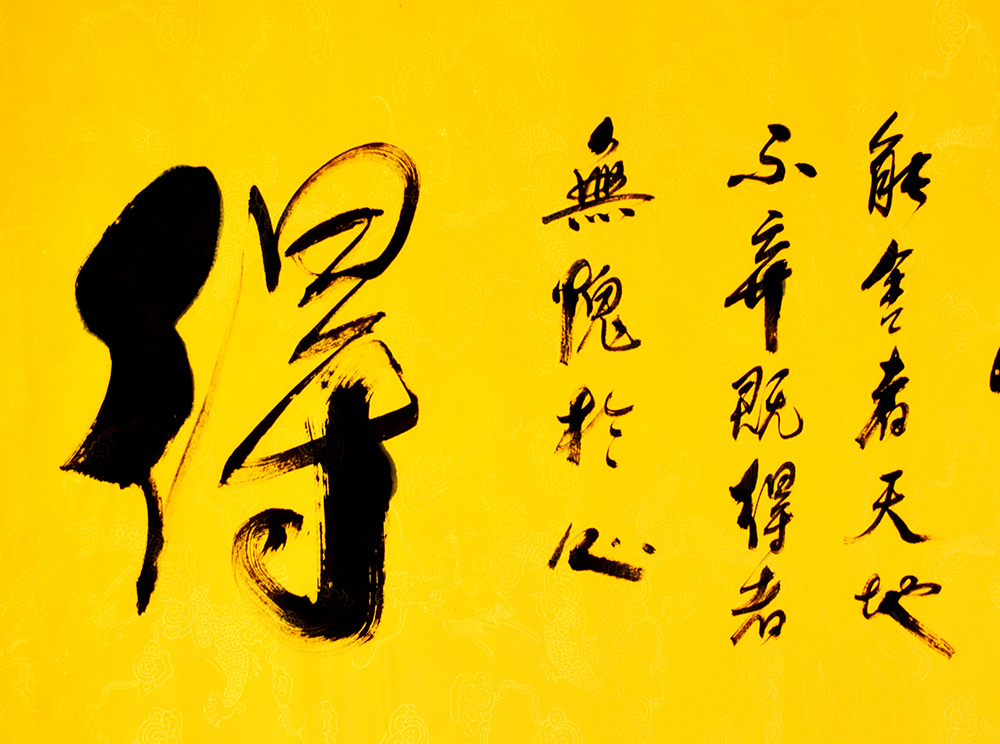 能舍者天地
不弃既得者
無愧於心
得